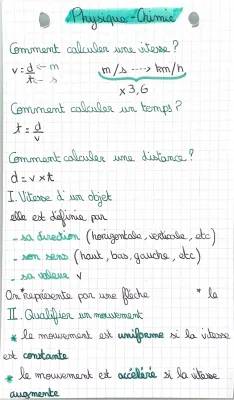 Physique-Chimie
Comment calculer une vitesse?
v = d ← m
t ← s
m/s ----> km/h
x 3,6
Comment calculer un temps?
t = d
v
Comment calculer une distance?
d = v x t
I. Vitesse d'un objet
elle est définie par
- sa direction (horizontale, verticale, etc)
- son sens (haut, bas, gauche, etc)
- sa valeur v
On *représente par une flèche * le
II. Qualifier un mouvement
* le mouvement est uniforme si la vitesse
est constante
* le mouvement est accéléré si la vitesse
augmente